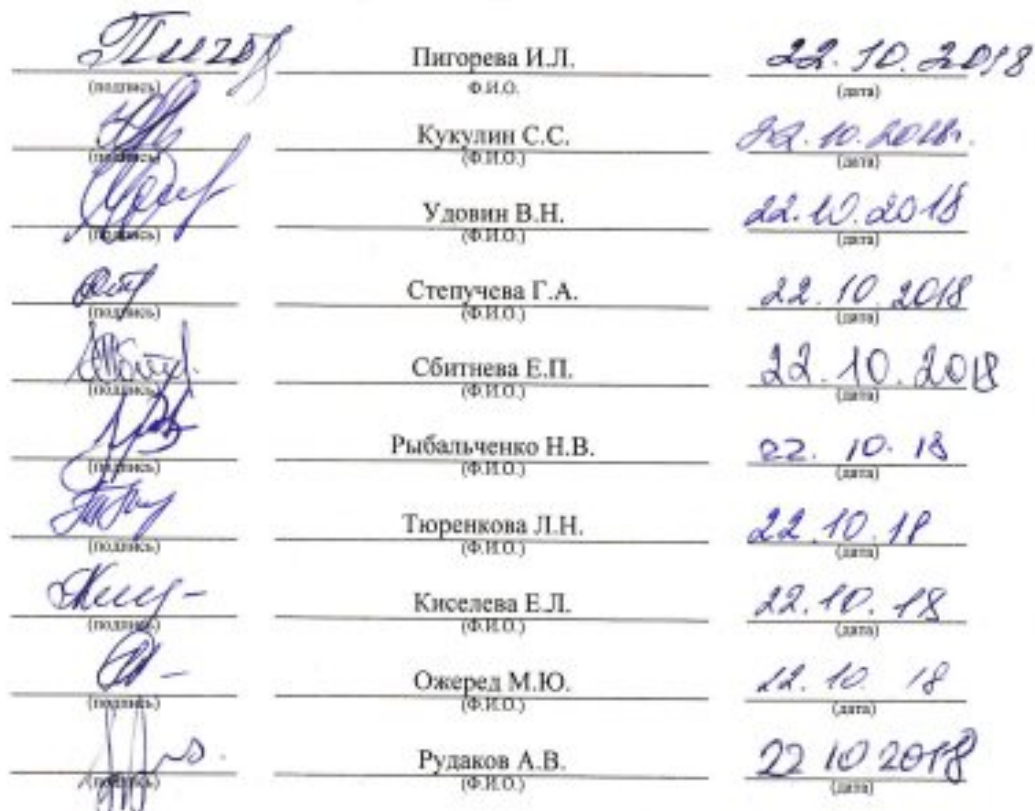 Пигорева И.Л. 22.10.2018
(подпись) Ф.И.О. (дата)
Кукулин С.С. 22.10.2018г.
(подпись) (Ф.И.О.) (дата)
Удовин В.Н. 22.10.2018
(подпись) (Ф.И.О.) (дата)
Степучева Г.А. 22.10.2018
(подпись) (Ф.И.О.) (дата)
Сбитнева Е.П. 22.10.2018
(подпись) (Ф.И.О.) (дата)
Рыбальченко Н.В. 22.10.18
(подпись) (Ф.И.О.) (дата)
Тюренкова Л.Н. 22.10.18
(подпись) (Ф.И.О.) (дата)
Киселева Е.Л. 22.10.18
(подпись) (Ф.И.О.) (дата)
Ожеред М.Ю. 22.10.18
(подпись) (Ф.И.О.) (дата)
Рудаков А.В. 22 10 2018
(подпись) (Ф.И.О.) (дата)